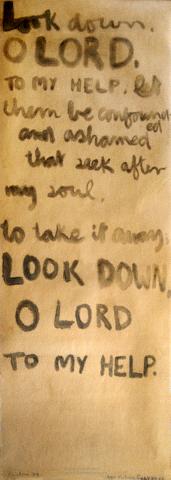 Look down,
O LORD,
TO MY HELP. let
them be confound
ed
and ashamed
that seek after
my soul,
to take it away:
LOOK DOWN,
O LORD
TO MY HELP.